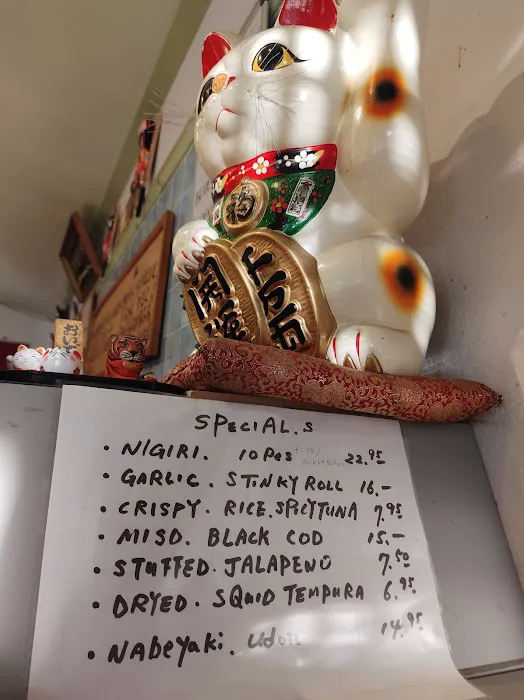 福
開運
千万両
おいで
SPECIAL.S
• NIGIRI. 10 Pes 22.95
• GARLIC. STINKY ROLL 16.-
• CRISPY. RICE.SPICYTUNA 7.95
• MISO. BLACK COD 15.-
• STUFFED. JALAPENO 7.50
• DRYED. SQUID TEMPURA 6.95
• NABEYAKI. Udon 14.95